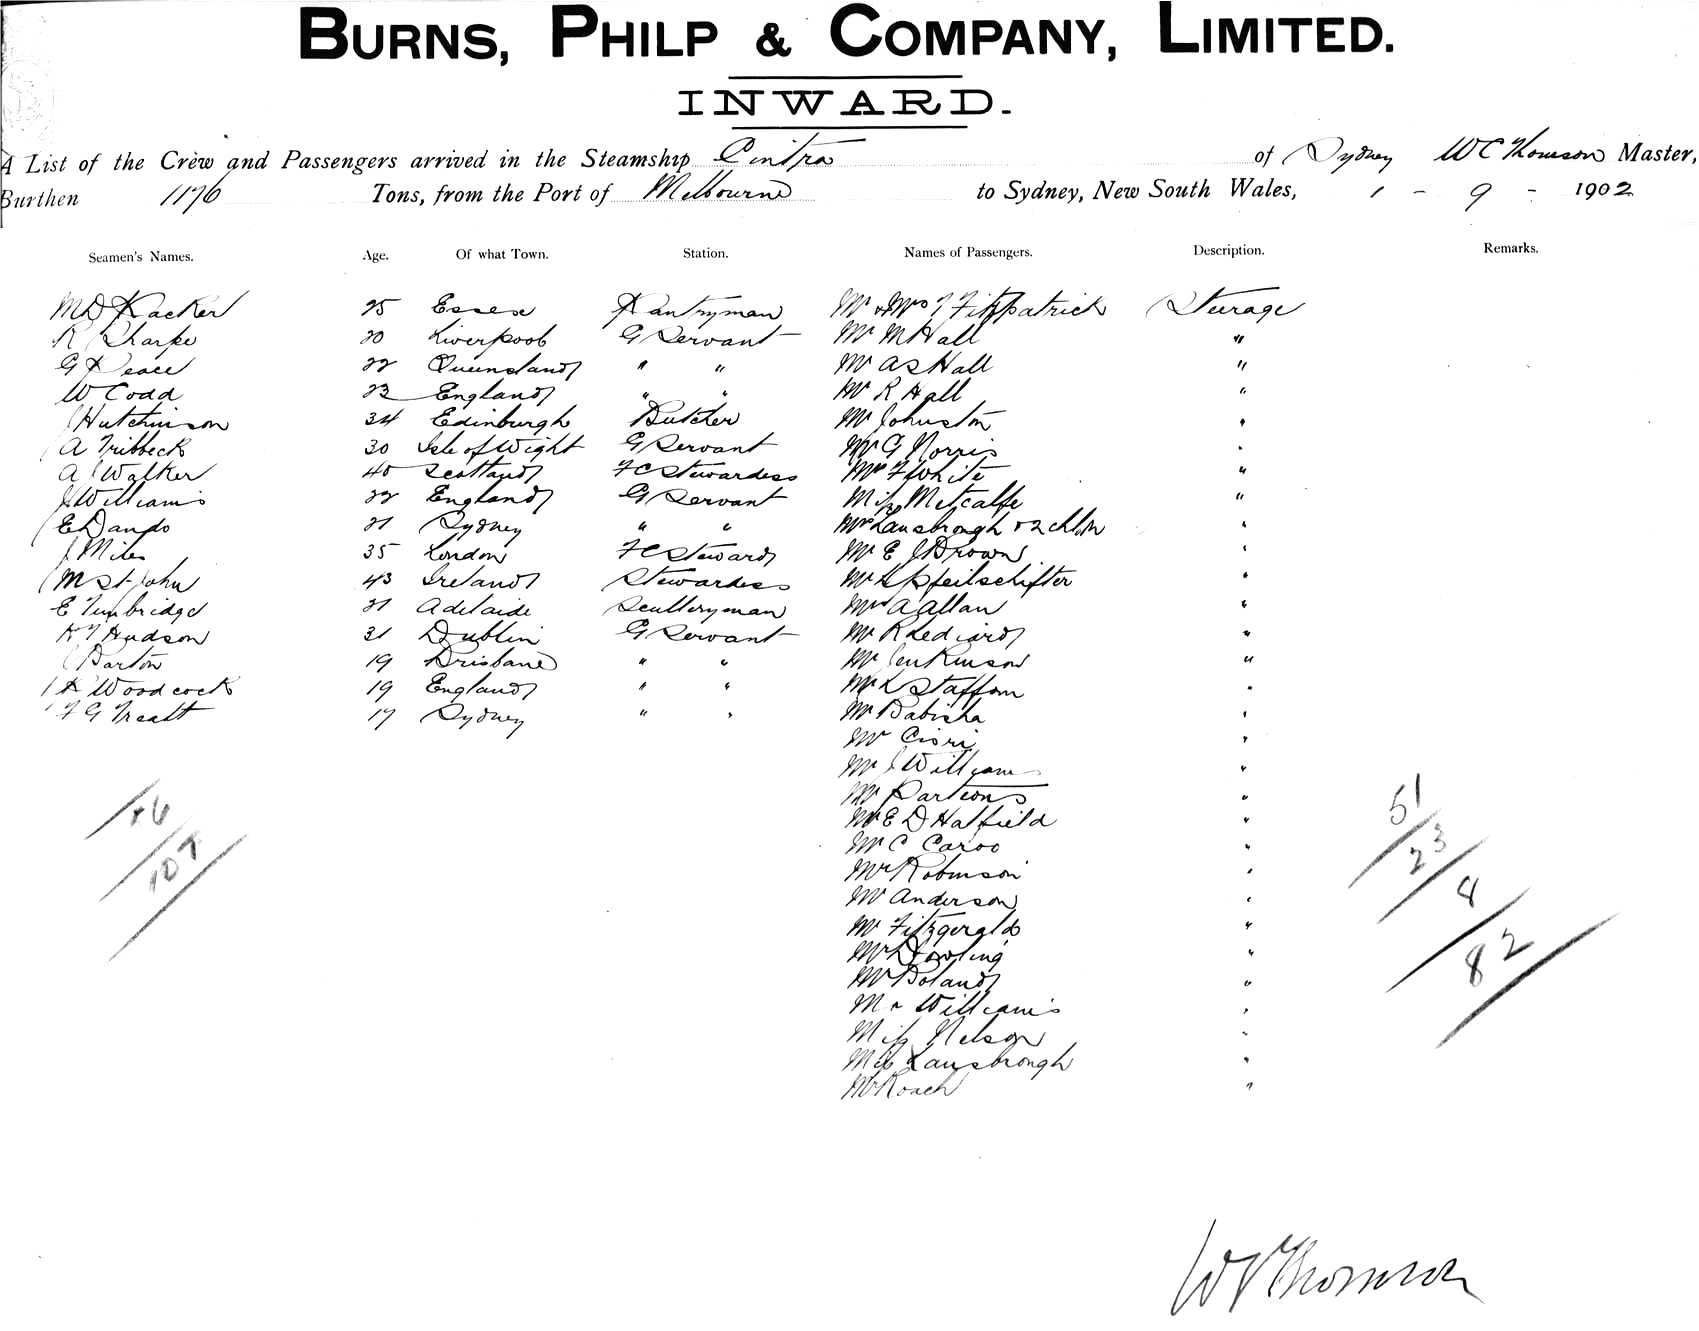 BURNS, PHILP & COMPANY, LIMITED.
INWARD.
A List of the Crew and Passengers arrived in the Steamship Cintra of Sydney W C Thomson Master,
Burthen 1176 Tons, from the Port of Melbourne to Sydney, New South Wales, 1 - 9 - 1902
Seamen's Names. Age. Of what Town. Station. Names of Passengers. Description. Remarks.
25 Essex Pantryman Mr & Mrs Fitzpatrick Steerage
R Sharpe 20 Liverpool G Servant Mr M Hall "
G Peace 22 Queensland " " Mr A S Hall "
W Codd 23 England " " Mr R Hall "
J Hutchinson 34 Edinburgh Butcher Mr Johnston "
A Tribbeck 30 Isle of Wight G Servant Mr G Norris "
A J Walker 40 Scotland F C Stewardess Mr F White "
J Williams 22 England G Servant Miss Metcalfe "
E Dando 21 Sydney " " Mrs Lansbrough & 2 chldn "
J Miles 35 London F C Steward Mr E J Brown "
M St John 43 Ireland Stewardess Mr L Pfeilschifter "
E Timbridge 21 Adelaide Sculleryman A Allan "
Hudson 31 Dublin G Servant Mr R Lediard "
J Barton 19 Brisbane " " Mr Jenkinson "
Woodcock 19 England " " Mr L Staffom "
F G Treatt 17 Sydney " " Mr Babisha "
Mr Ciori "
Mr J Williams "
Mr Partions "
Mr E D Hatfield "
Mr C Caroo "
Mr Robinson "
Mr Anderson "
Mr Fitzgerald "
Mr Dowling "
Mr Boland "
Mr Williams "
Miss Nelson "
Miss Lansbrough "
Mr Roach "
16
107
51
23
8
82
W C Thomson